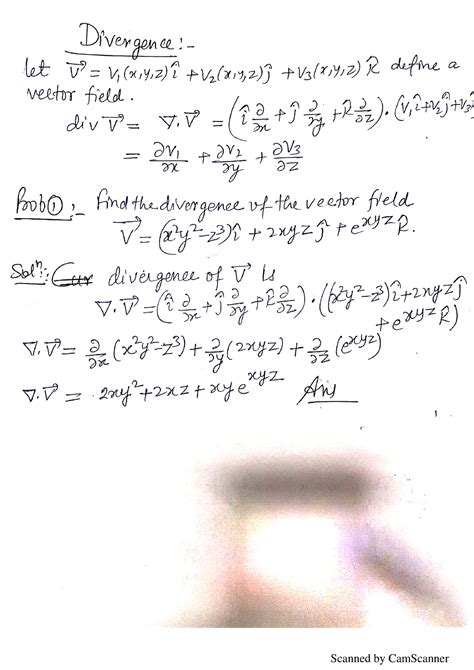 Divergence:-
let V⃗ = V₁(x,y,z)î + V₂(x,y,z)ĵ + V₃(x,y,z)k̂ define a
vector field.
div V⃗ = ∇.V⃗ = (î ∂/∂x + ĵ ∂/∂y + k̂ ∂/∂z).(V₁î+V₂ĵ+V₃k̂
= ∂V₁/∂x + ∂V₂/∂y + ∂V₃/∂z
Prob①:- Find the divergence of the vector field
V⃗ = (x²y²-z³)î + 2xyzĵ + e^xyz k̂.
Solⁿ:- divergence of V⃗ is
∇.V⃗ = (î ∂/∂x + ĵ ∂/∂y + k̂ ∂/∂z).((x²y²-z³)î+2xyzĵ
+ e^xyz k̂)
∇.V⃗ = ∂/∂x (x²y²-z³) + ∂/∂y (2xyz) + ∂/∂z (e^xyz)
∇.V⃗ = 2xy²+2xz+xye^xyz Ans
Scanned by CamScanner